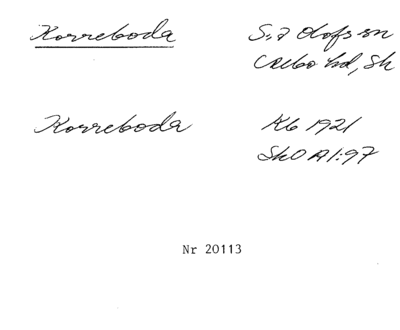 Korreboda
S:t Olofs sn
Albo hd, Sk
Korreboda
Kb 1921
SkO A1:97
Nr 20113